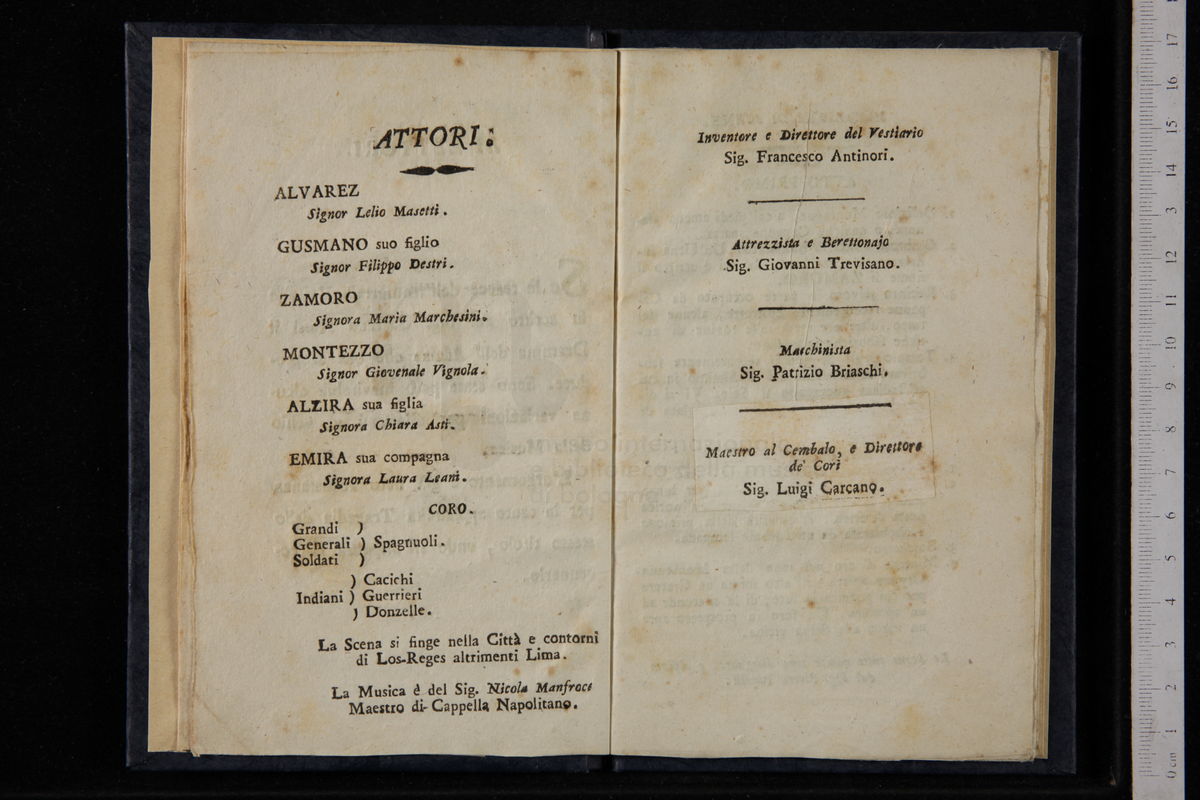 ATTORI:
ALVAREZ
Signor Lelio Masetti.
GUSMANO suo figlio
Signor Filippo Destri.
ZAMORO
Signora Maria Marchesini.
MONTEZZO
Signor Giovenale Vignola.
ALZIRA sua figlia
Signora Chiara Asti.
EMIRA sua compagna
Signora Laura Leani.
CORO.
Grandi )
Generali ) Spagnuoli.
Soldati )
) Cacichi
Indiani ) Guerrieri
) Donzelle.
La Scena si finge nella Città e contorni
di Los-Reges altrimenti Lima.
La Musica è del Sig. Nicola Manfroce
Maestro di Cappella Napolitano.
Inventore e Direttore del Vestiario
Sig. Francesco Antinori.
Attrezzista e Berettonajo
Sig. Giovanni Trevisano.
Macchinista
Sig. Patrizio Briaschi.
Maestro al Cembalo, e Direttore
de' Cori
Sig. Luigi Carcano.
0 cm 1 2 3 4 5 6 7 8 9 10 11 12 3 14 15 16 17